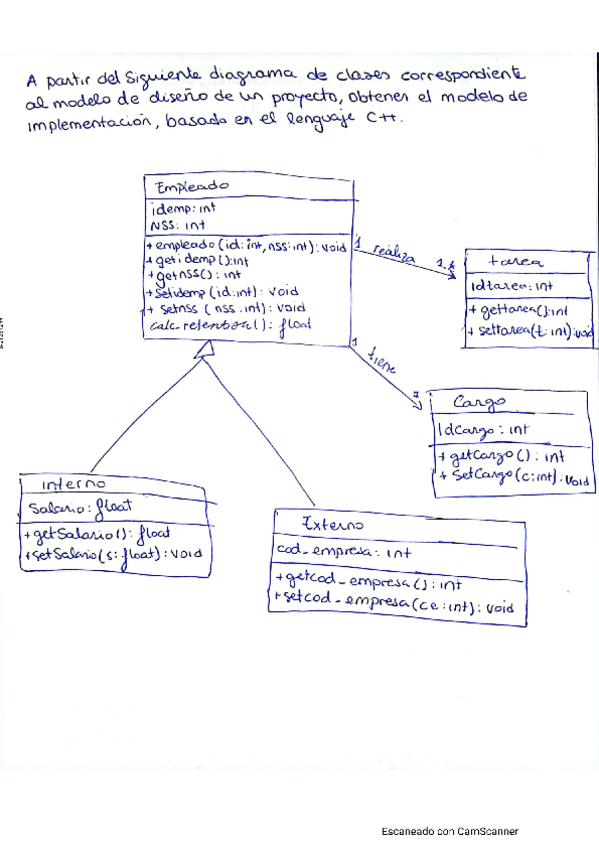 A partir del Siguiente diagrama de clases correspondiente
al modelo de diseño de un proyecto, obtener el modelo de
implementación, basado en el lenguaje C++.
Empleado
idemp: int
NSS: int
+ empleado (id: int, nss: int): void
+ getidemp(): int
+ getnss(): int
+ Setidemp (id: int): void
+ setnss (nss: int): void
calc_retención(): float
1 realiza 1..*
tarea
Idtarea: int
+ gettarea(): int
+ settarea(t: int): void
1 tiene *
Cargo
IdCargo: int
+ getCargo(): int
+ SetCargo(c: int): void
interno
Salario: float
+ getSalario(): float
+ setSalario(s: float): void
Externo
cod_empresa: int
+ getcod_empresa(): int
+ setcod_empresa(ce: int): void
Escaneado con CamScanner